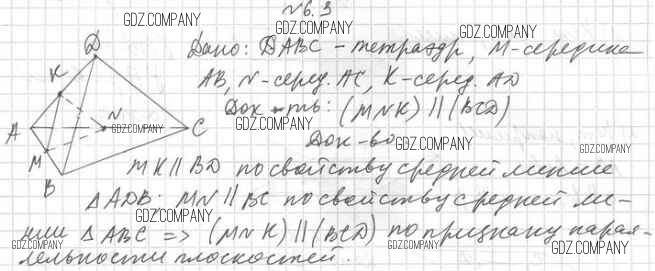 №6.3
GDZ.COMPANY
GDZ.COMPANY
Дано: DABC – тетраэдр, M – середина
AB, N – серед. AC, K – серед. AD
GDZ.COMPANY
Док-ть: (MNK) || (BCD)
GDZ.COMPANY
Док-во
D
K
N
A
C
M
B
GDZ.COMPANY
GDZ.COMPANY
MK || BD по свойству средней линие
GDZ.COMPANY
△ADB. MN || BC по свойству средней ли-
GDZ.COMPANY
нии △ABC => (MNK) || (BCD) по признаку парал-
GDZ.COMPANY
GDZ.COMPANY
GDZ.COMPANY
лельности плоскостей.